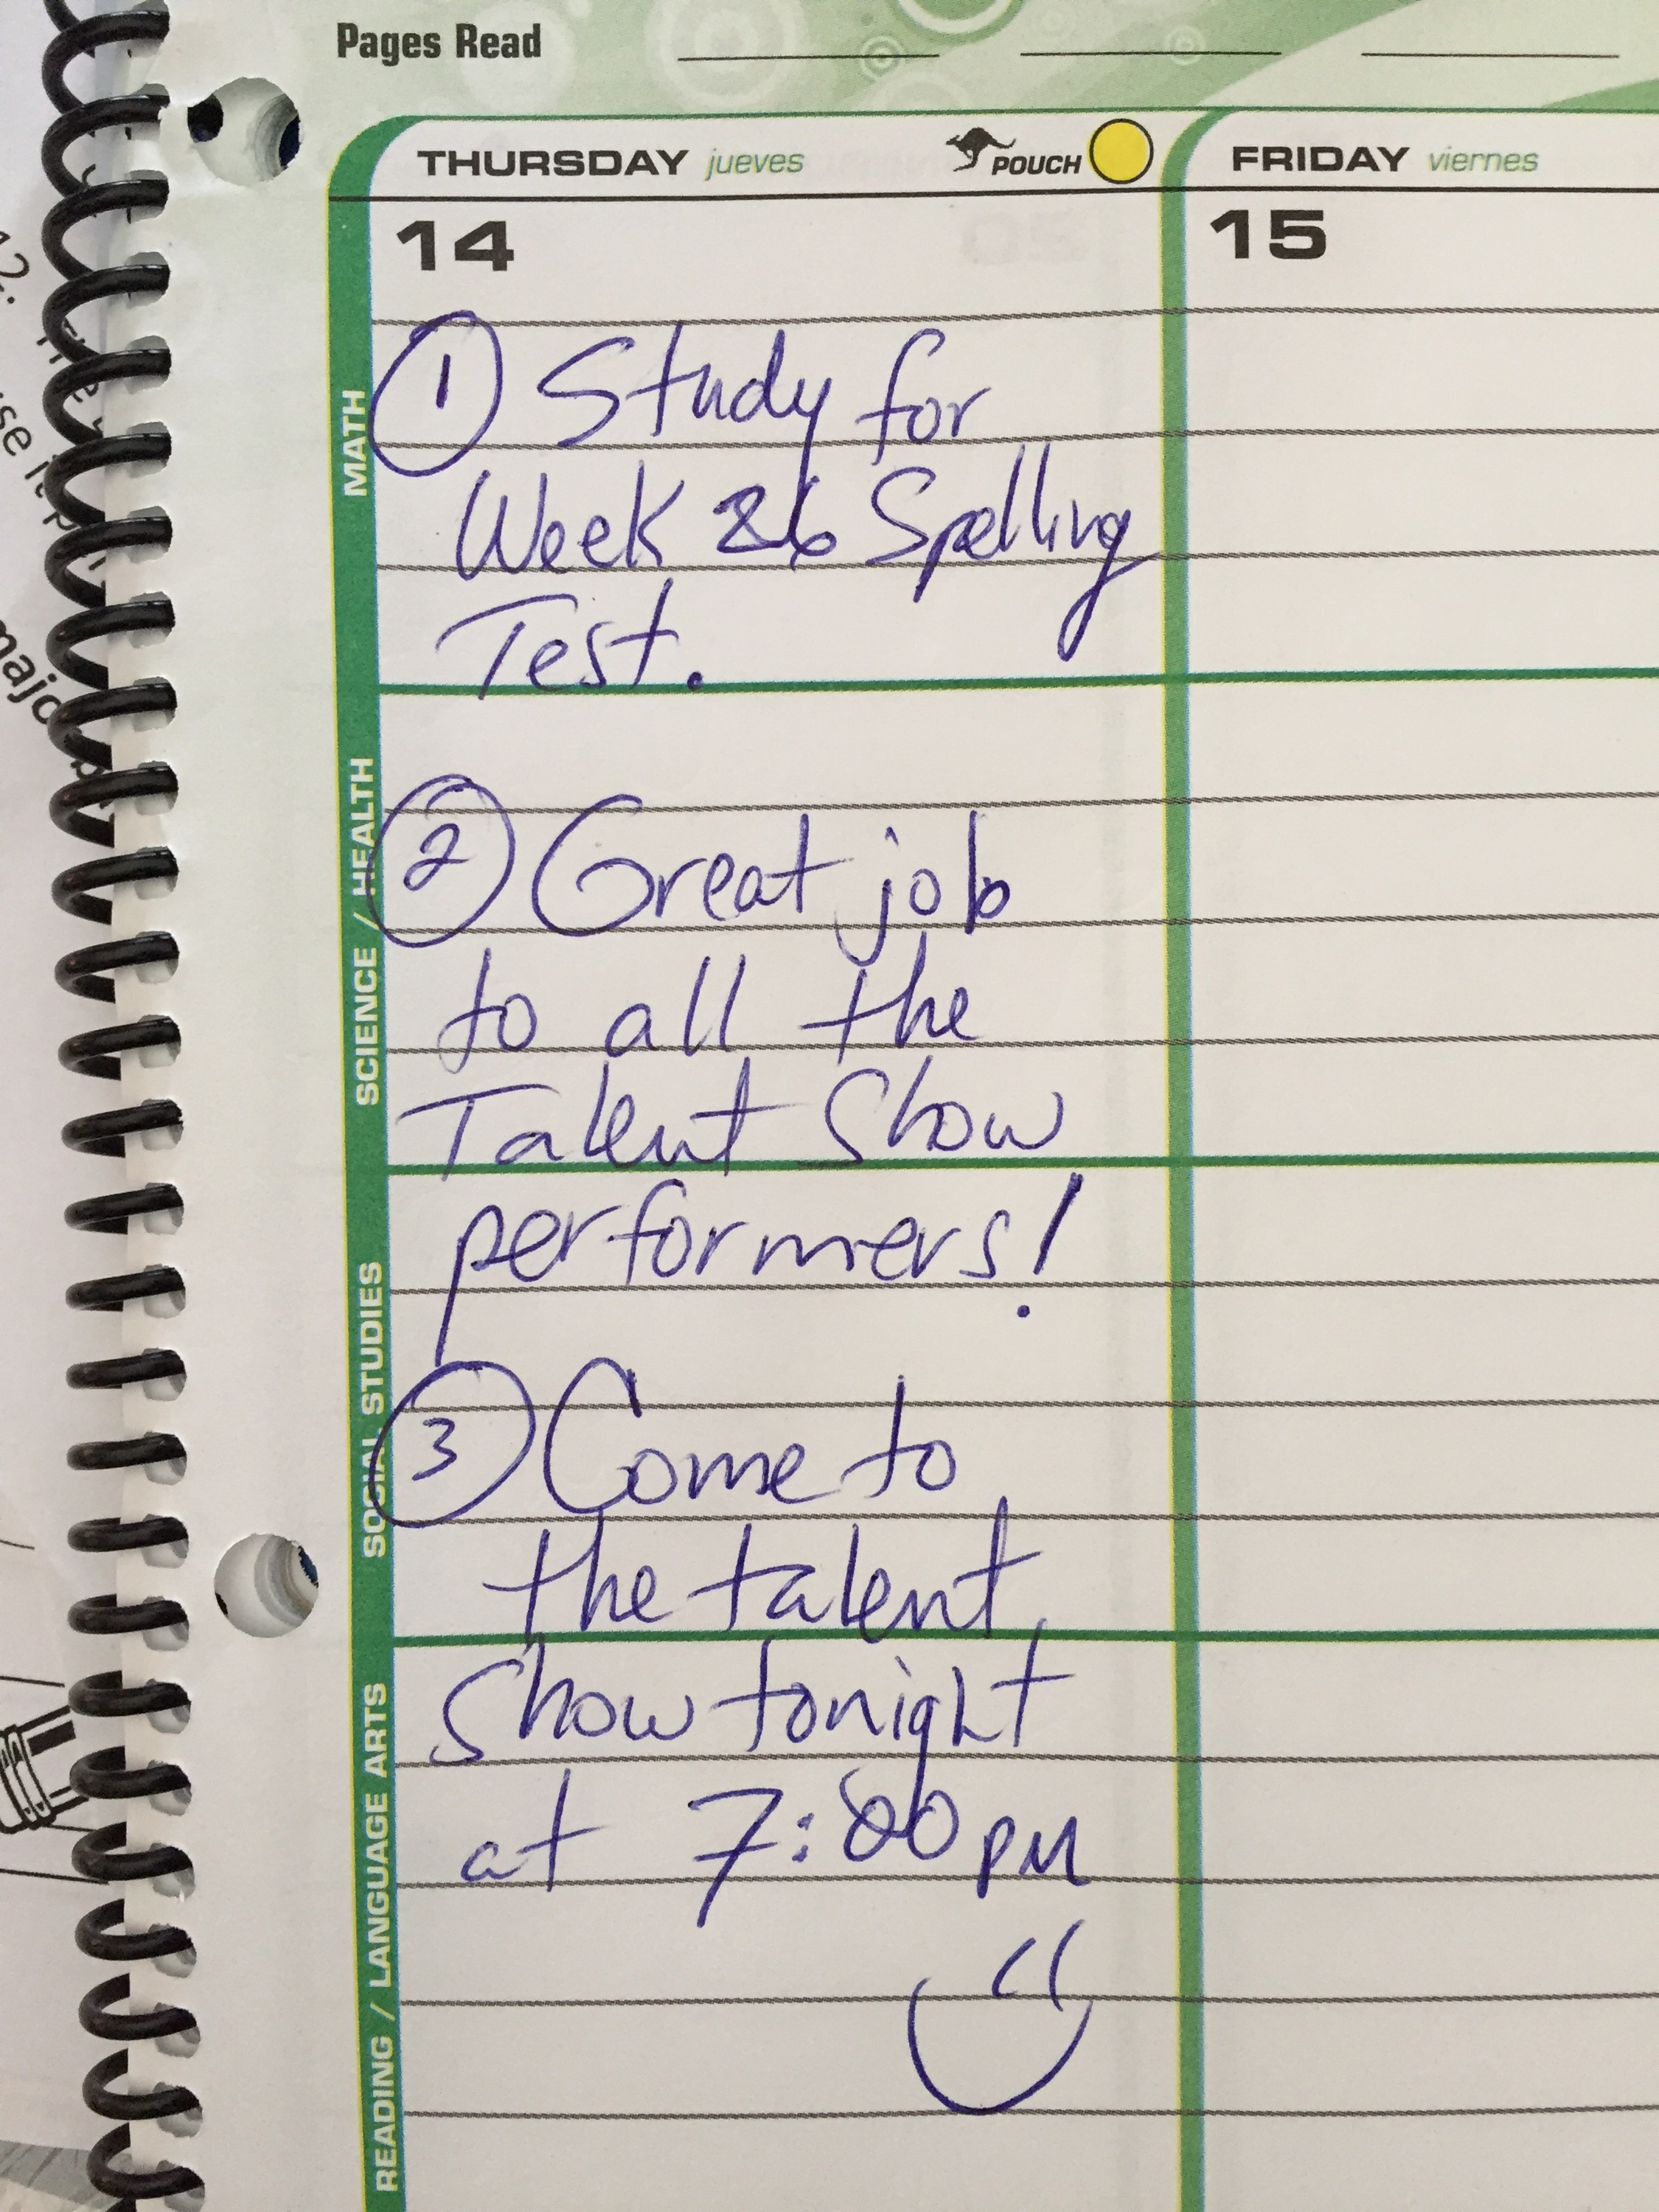 Pages Read
THURSDAY jueves POUCH FRIDAY viernes
14 15
MATH
① Study for
Week 26 Spelling
Test.
SCIENCE / HEALTH
② Great job
to all the
Talent Show
performers!
SOCIAL STUDIES
③ Come to
the talent
show tonight
at 7:00 pm
READING / LANGUAGE ARTS
12.
majo